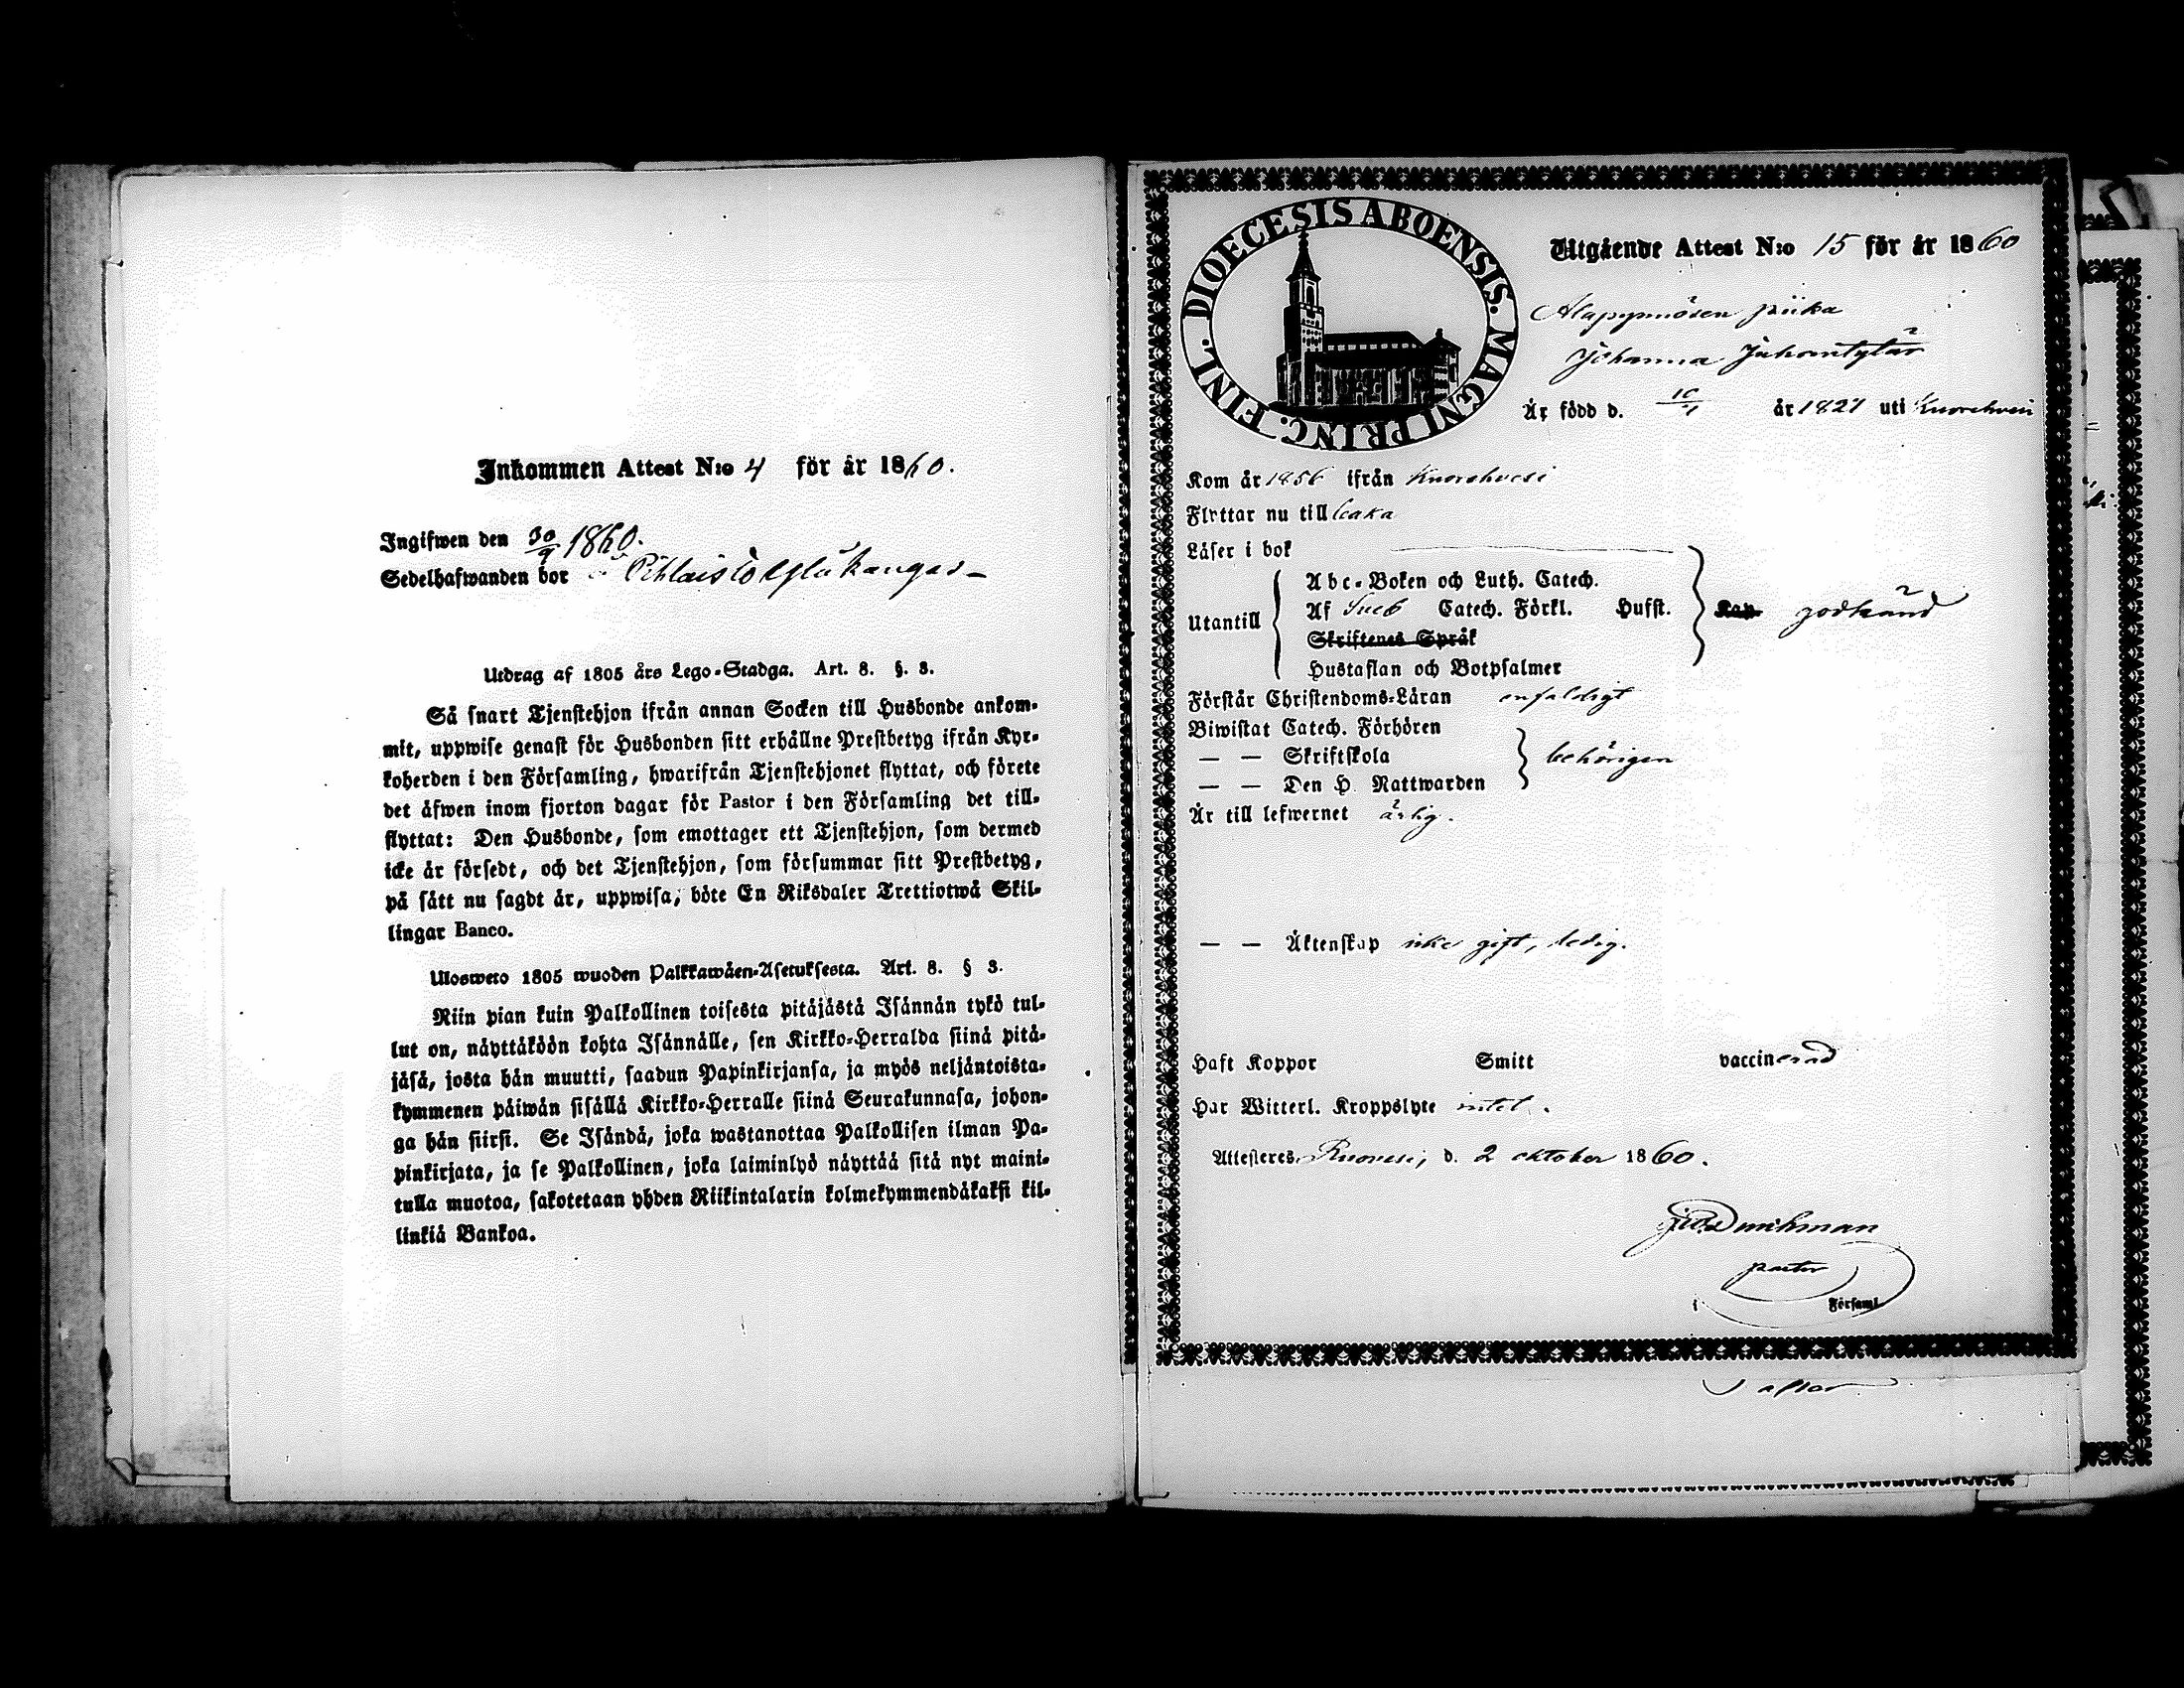 Inkommen Attest N:o 4 för år 1860.
Ingifwen den 30/9 1860.
Sedelhafwanden bor
Utdrag af 1805 års Lego-Stadga. Art. 8. §. 3.
Så snart Tjenstehjon ifrån annan Socken till Husbonde ankom-
mit, uppwise genast för Husbonden sitt erhållne Prestbetyg ifrån Kyr-
koherden i den Församling, hwarifrån Tjenstehjonet flyttat, och förete
det äfwen inom fjorton dagar för Pastor i den Församling det till-
flyttat: Den Husbonde, som emottager ett Tjenstehjon, som dermed
icke är försedt, och det Tjenstehjon, som försummar sitt Prestbetyg,
på sätt nu sagdt är, uppwisa, böte En Riksdaler Trettiotwå Skil-
lingar Banco.
Ulosweto 1805 wuoden Palkkawäen-Asetuksesta. Art. 8. § 3.
Niin pian kuin Palkollinen toisesta pitäjästä Isännän tykö tul-
lut on, näyttäköön kohta Isännälle, sen Kirkko-Herralda siinä pitä-
jäsä, josta hän muutti, saadun Papinkirjansa, ja myös neljäntoista-
kymmenen päiwän sisällä Kirkko-Herralle siinä Seurakunnasa, johon-
ga hän siirsi. Se Isändä, joka wastanottaa Palkollisen ilman Pa-
pinkirjata, ja se Palkollinen, joka laiminlyö näyttää sitä nyt maini-
tulla muotoa, sakotetaan yhden Riikintalarin kolmekymmendäkaksi kil-
linkiä Bankoa.
DIOECESIS ABOENSIS. MAGNI PRINC. FINL.
Utgående Attest N:o 15 för år 1860
piika
Johanna Juhontytär
Är född d. 10/1 år 1827 uti Kuorehvesi
Kom år 1856 ifrån Kuorehvesi
Flyttar nu till
Läser i bok
Utantill
Abc-Boken och Luth. Catech.
Af Sveb Catech. Förkl. Hufst.
Skriftenes Språk
Hustaflan och Botpsalmer
Kap. godkänd
Förstår Christendoms-Läran enfaldigt
Biwistat Catech. Förhören
— — Skriftskola
— — Den H. Nattwarden
behörigen
Är till lefwernet ärlig.
— — Äktenskap icke gift, ledig.
Haft Koppor Smitt vaccinerad
Har Witterl. Kroppslyte intet.
Attesteras Ruovesi, d. 2 oktober 1860.
pastor
i Församl.